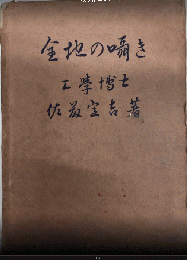 全地の囁き
工學博士
佐藤定吉著